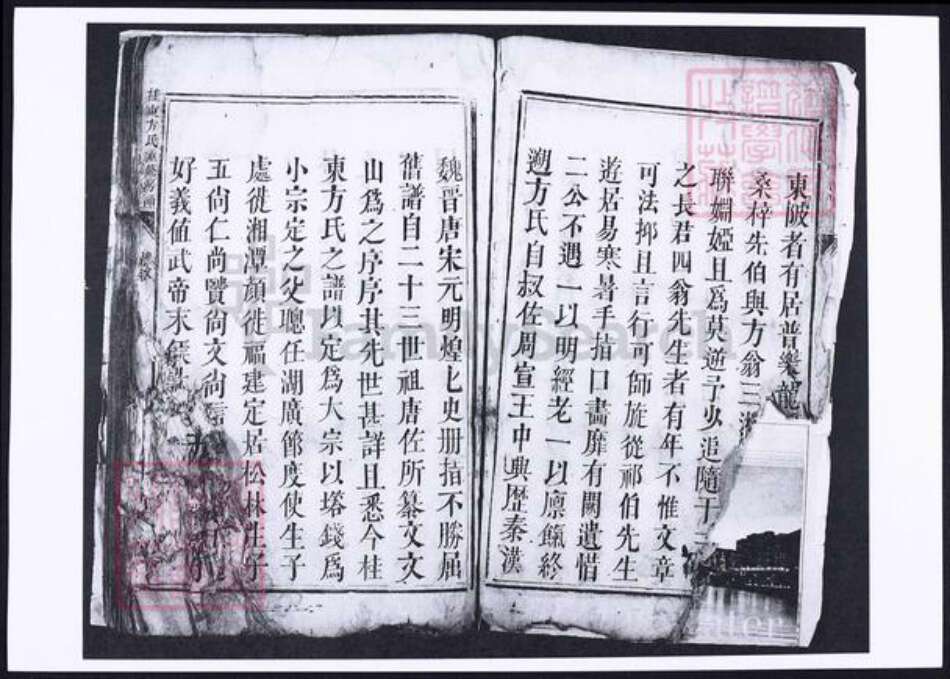 東陂者有居普樂龍
桑梓先伯與方翁三
聯姻婭且為莫逆予少追隨于
之長君四翁先生者有年不惟文章
可法抑且言行可師旋從祁伯先生
遊居易寒暑手掿口畫靡有闕遺惜
二公不遇一以明經老一以廩餼終
溯方氏自叔佐周宣王中興歴秦漢
魏晉唐宋元明煌匕史册掿不勝屈
舊譜自二十三世祖唐佐所纂文文
山爲之序序其先世甚詳且悉今桂
東方氏之譜以定爲大宗以塔錢爲
小宗定之父聰任湖廣節度使生子
處徙湘潭顔徙福建定居松林生子
五尚仁尚賢尚文尚
好義值武帝末
方氏
FamilySearch